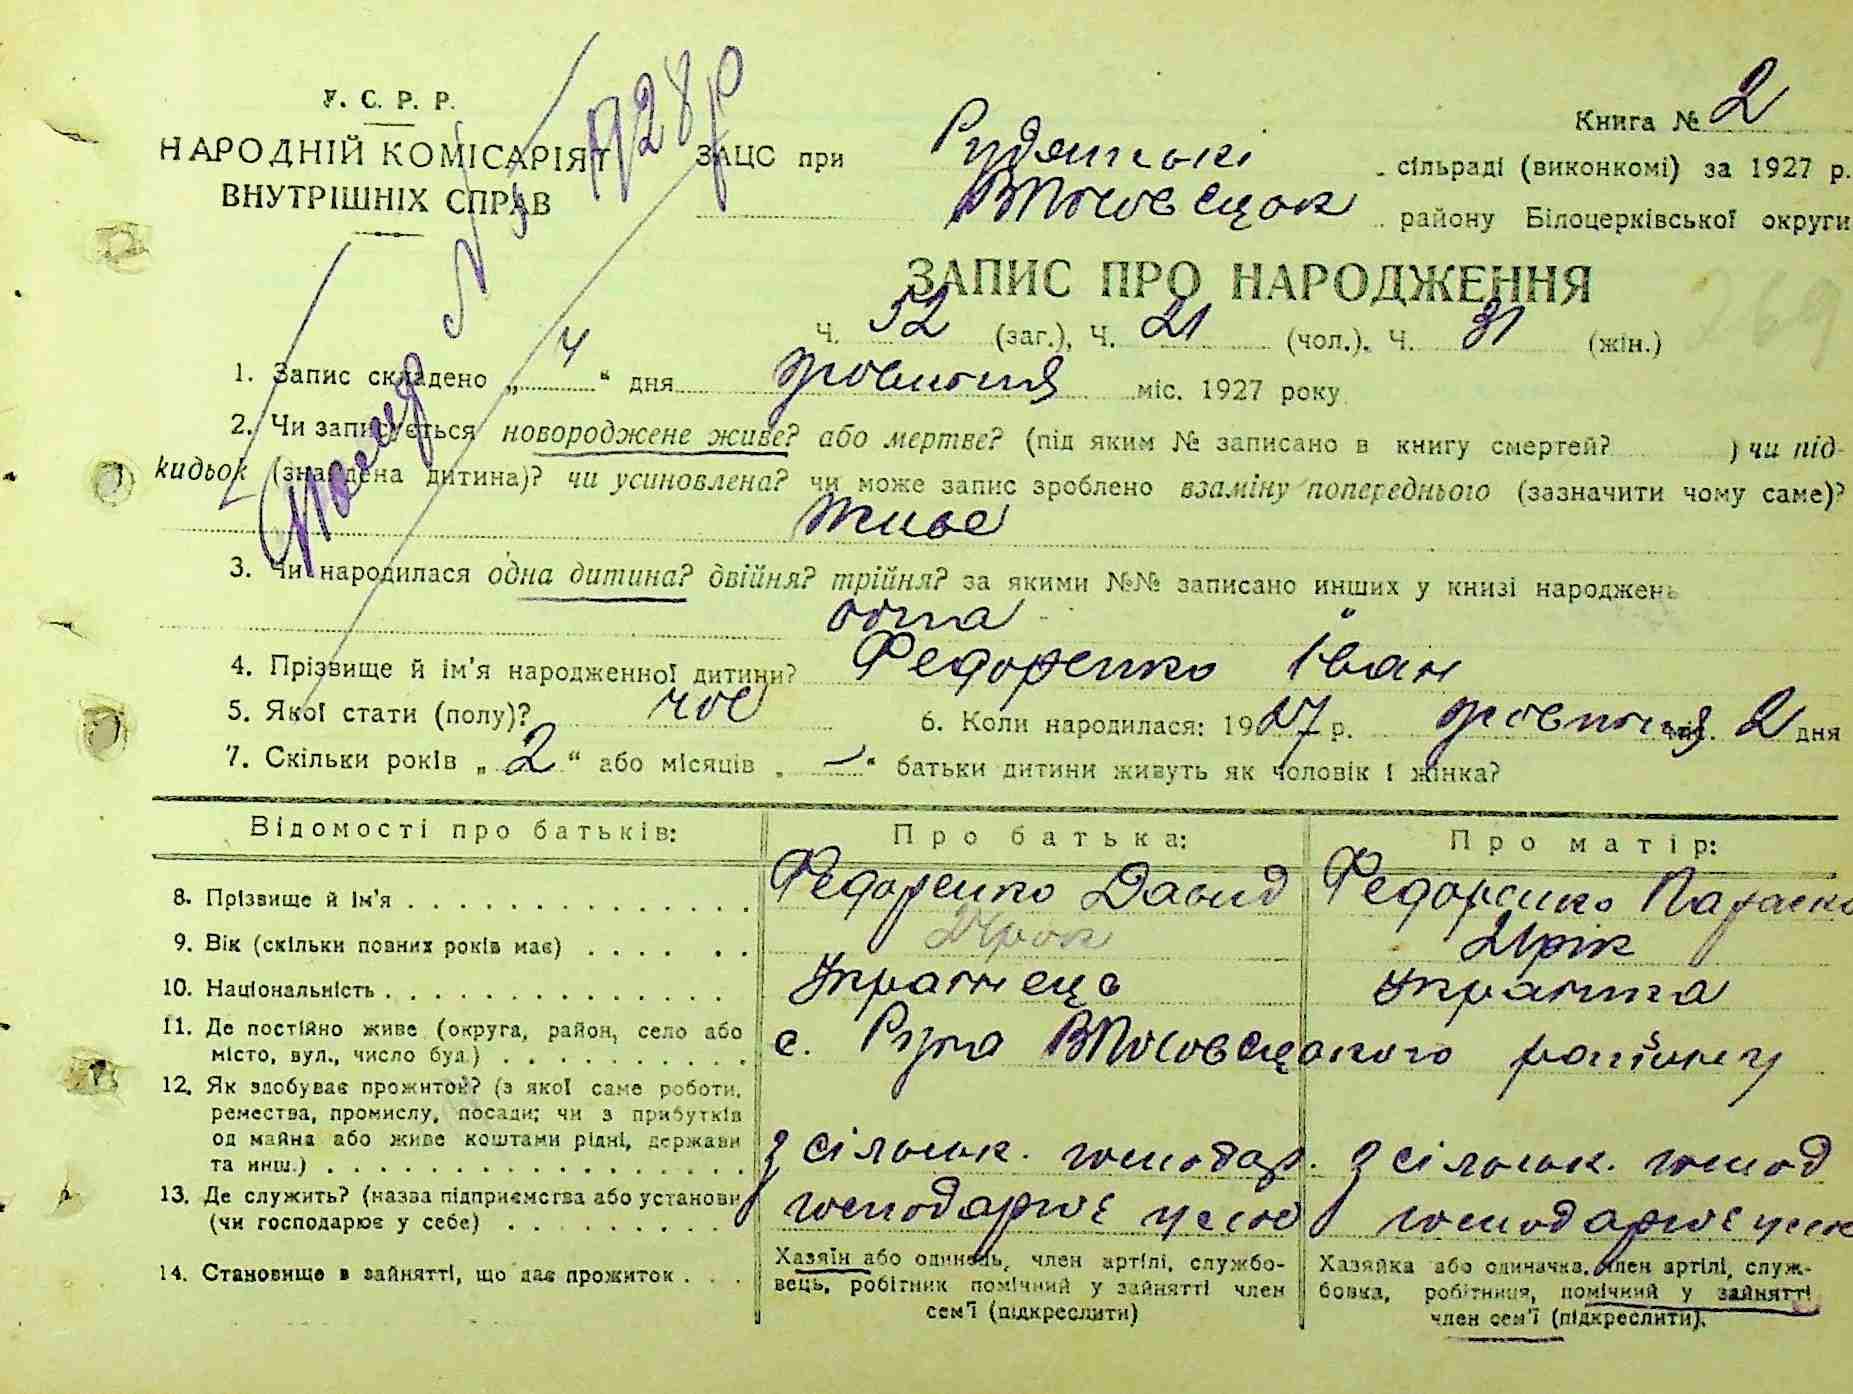 У. С. Р. Р.
НАРОДНІЙ КОМІСАРІЯТ
ВНУТРІШНІХ СПРАВ
1928 р
Книга № 2
ЗАЦС при Рудянські сільраді (виконкомі) за 1927 р.
ВПоловецьк району Білоцерківської округи
ЗАПИС ПРО НАРОДЖЕННЯ
269
Ч. 52 (заг.), Ч. 21 (чол.), Ч. 31 (жін.)
1. Запис складено „ 4 “ дня жовтня міс. 1927 року
2. Чи записується новороджене живе? або мертве? (під яким № записано в книгу смертей? ) чи під-
кидьок (знайдена дитина)? чи усиновлена? чи може запис зроблено взаміну попереднього (зазначити чому саме)?
Живе
3. Чи народилася одна дитина? двійня? трійня? за якими №№ записано инших у книзі народжень
одна
4. Прізвище й ім'я народженної дитини? Федоренко Іван
5. Якої стати (полу)? чол 6. Коли народилася: 1927 р. жовтня міс. 2 дня
7. Скільки років „ 2 “ або місяців „ — “ батьки дитини живуть як чоловік і жінка?
Відомості про батьків: Про батька: Про матір:
8. Прізвище й ім'я Федоренко Давид Федоренко Параска
9. Вік (скільки повних років має) 21 рік
10. Національність Українець Українка
11. Де постійно живе (округа, район, село або
місто, вул., число буд.) с. Руда ВПоловецького району
12. Як здобуває прожиток? (з якої саме роботи,
ремества, промислу, посади; чи з прибутків
од майна або живе коштами рідні, держави
та инш.) з сільськ. господар. з сільськ. господ
13. Де служить? (назва підприємства або установи
(чи господарює у себе) господарює у себе господарює у себе
14. Становище в зайнятті, що дає прожиток
Хазяїн або одинець, член артілі, службо-
вець, робітник помічний у зайнятті член
сем'ї (підкреслити)
Хазяйка або одиначка, член артілі, служ-
бовка, робітниця, помічний у зайнятті
член сем'ї (підкреслити).